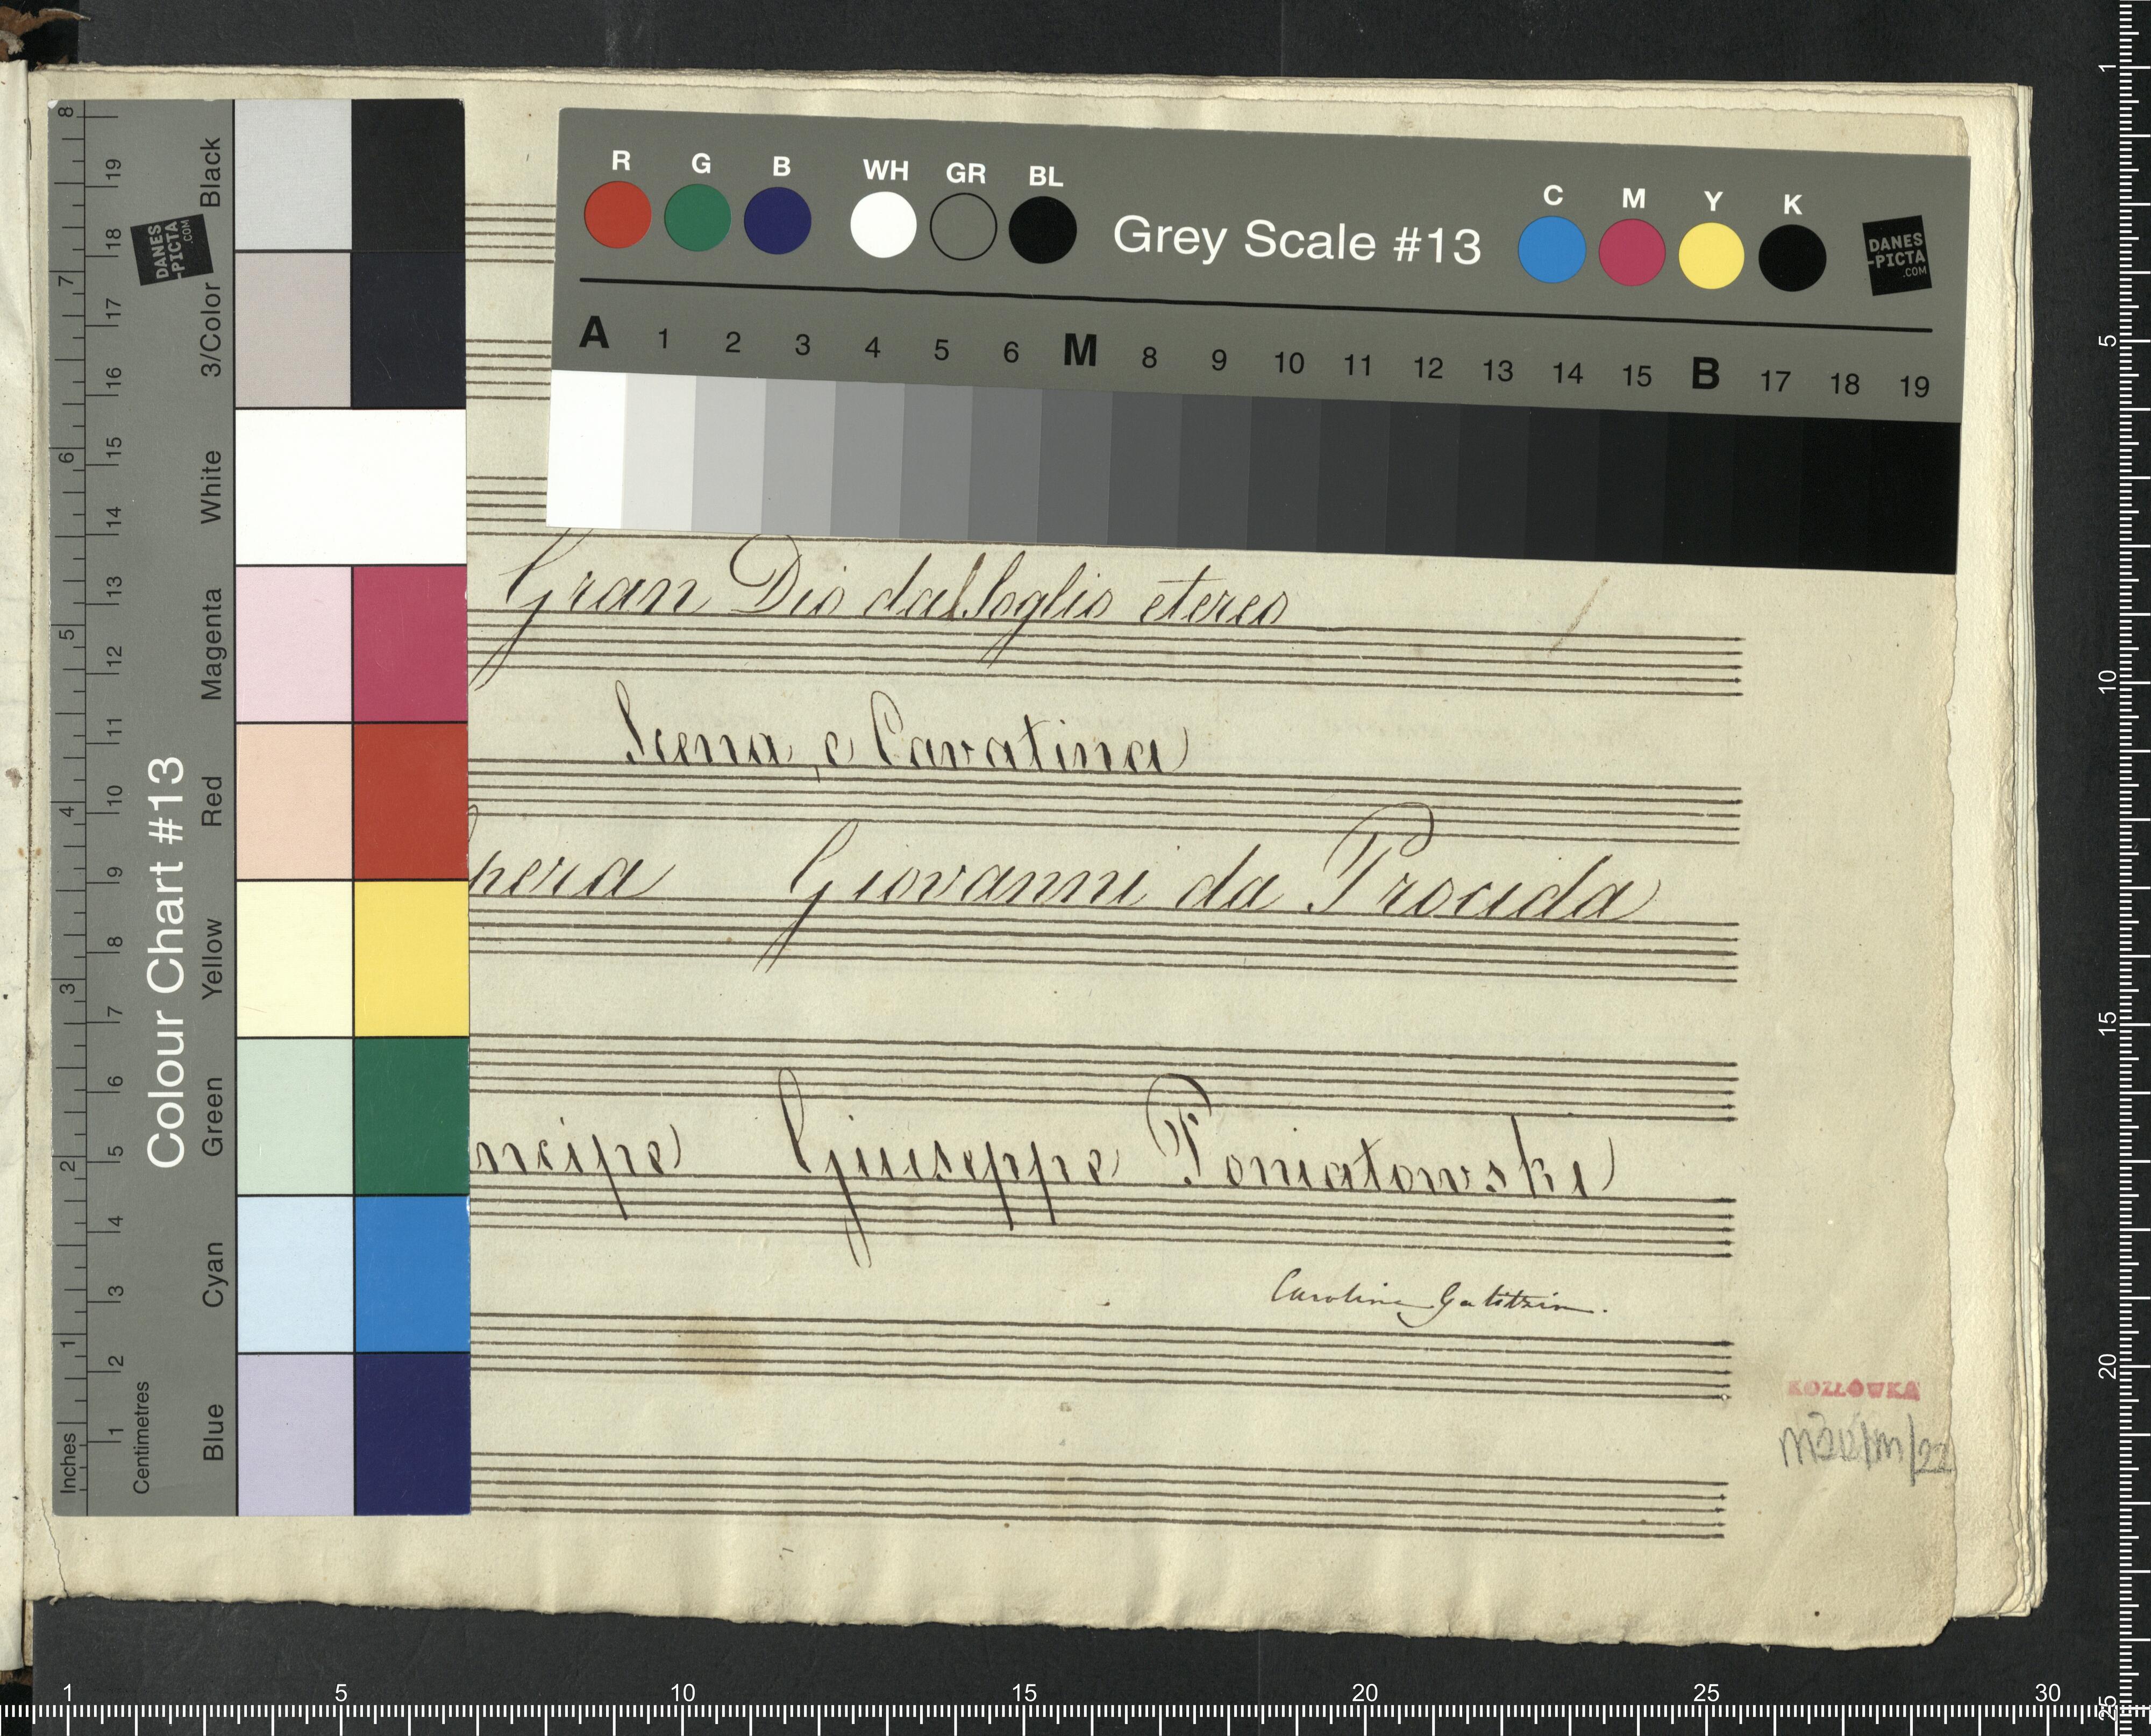 R G B WH GR BL Grey Scale #13 C M Y K DANES -PICTA .COM
A 1 2 3 4 5 6 M 8 9 10 11 12 13 14 15 B 17 18 19
Gran Dio dal soglio etereo
Scena, e Cavatina
pera Giovanni da Procida
ncipe Giuseppe Poniatowski
Caroline Galitzin.
KOZŁÓWKA
Colour Chart #13
Black
3/Color
White
Magenta
Red
Yellow
Green
Cyan
Blue
DANES -PICTA .COM
8 7 6 5 4 3 2 1 Inches
19 18 17 16 15 14 13 12 11 10 9 8 7 6 5 4 3 2 1 Centimetres
1 5 10 15 20 25 30
1 5 10 15 20 25